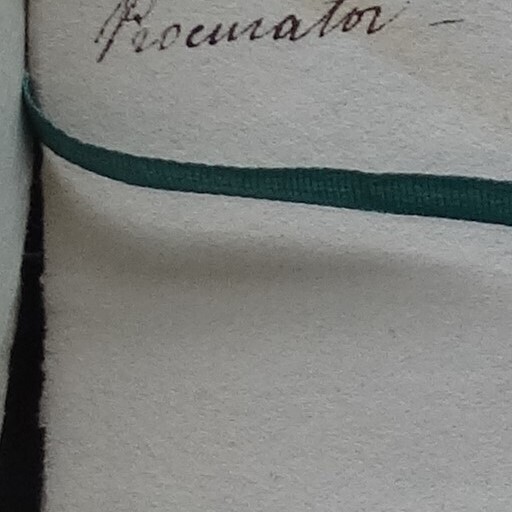 Procurator -